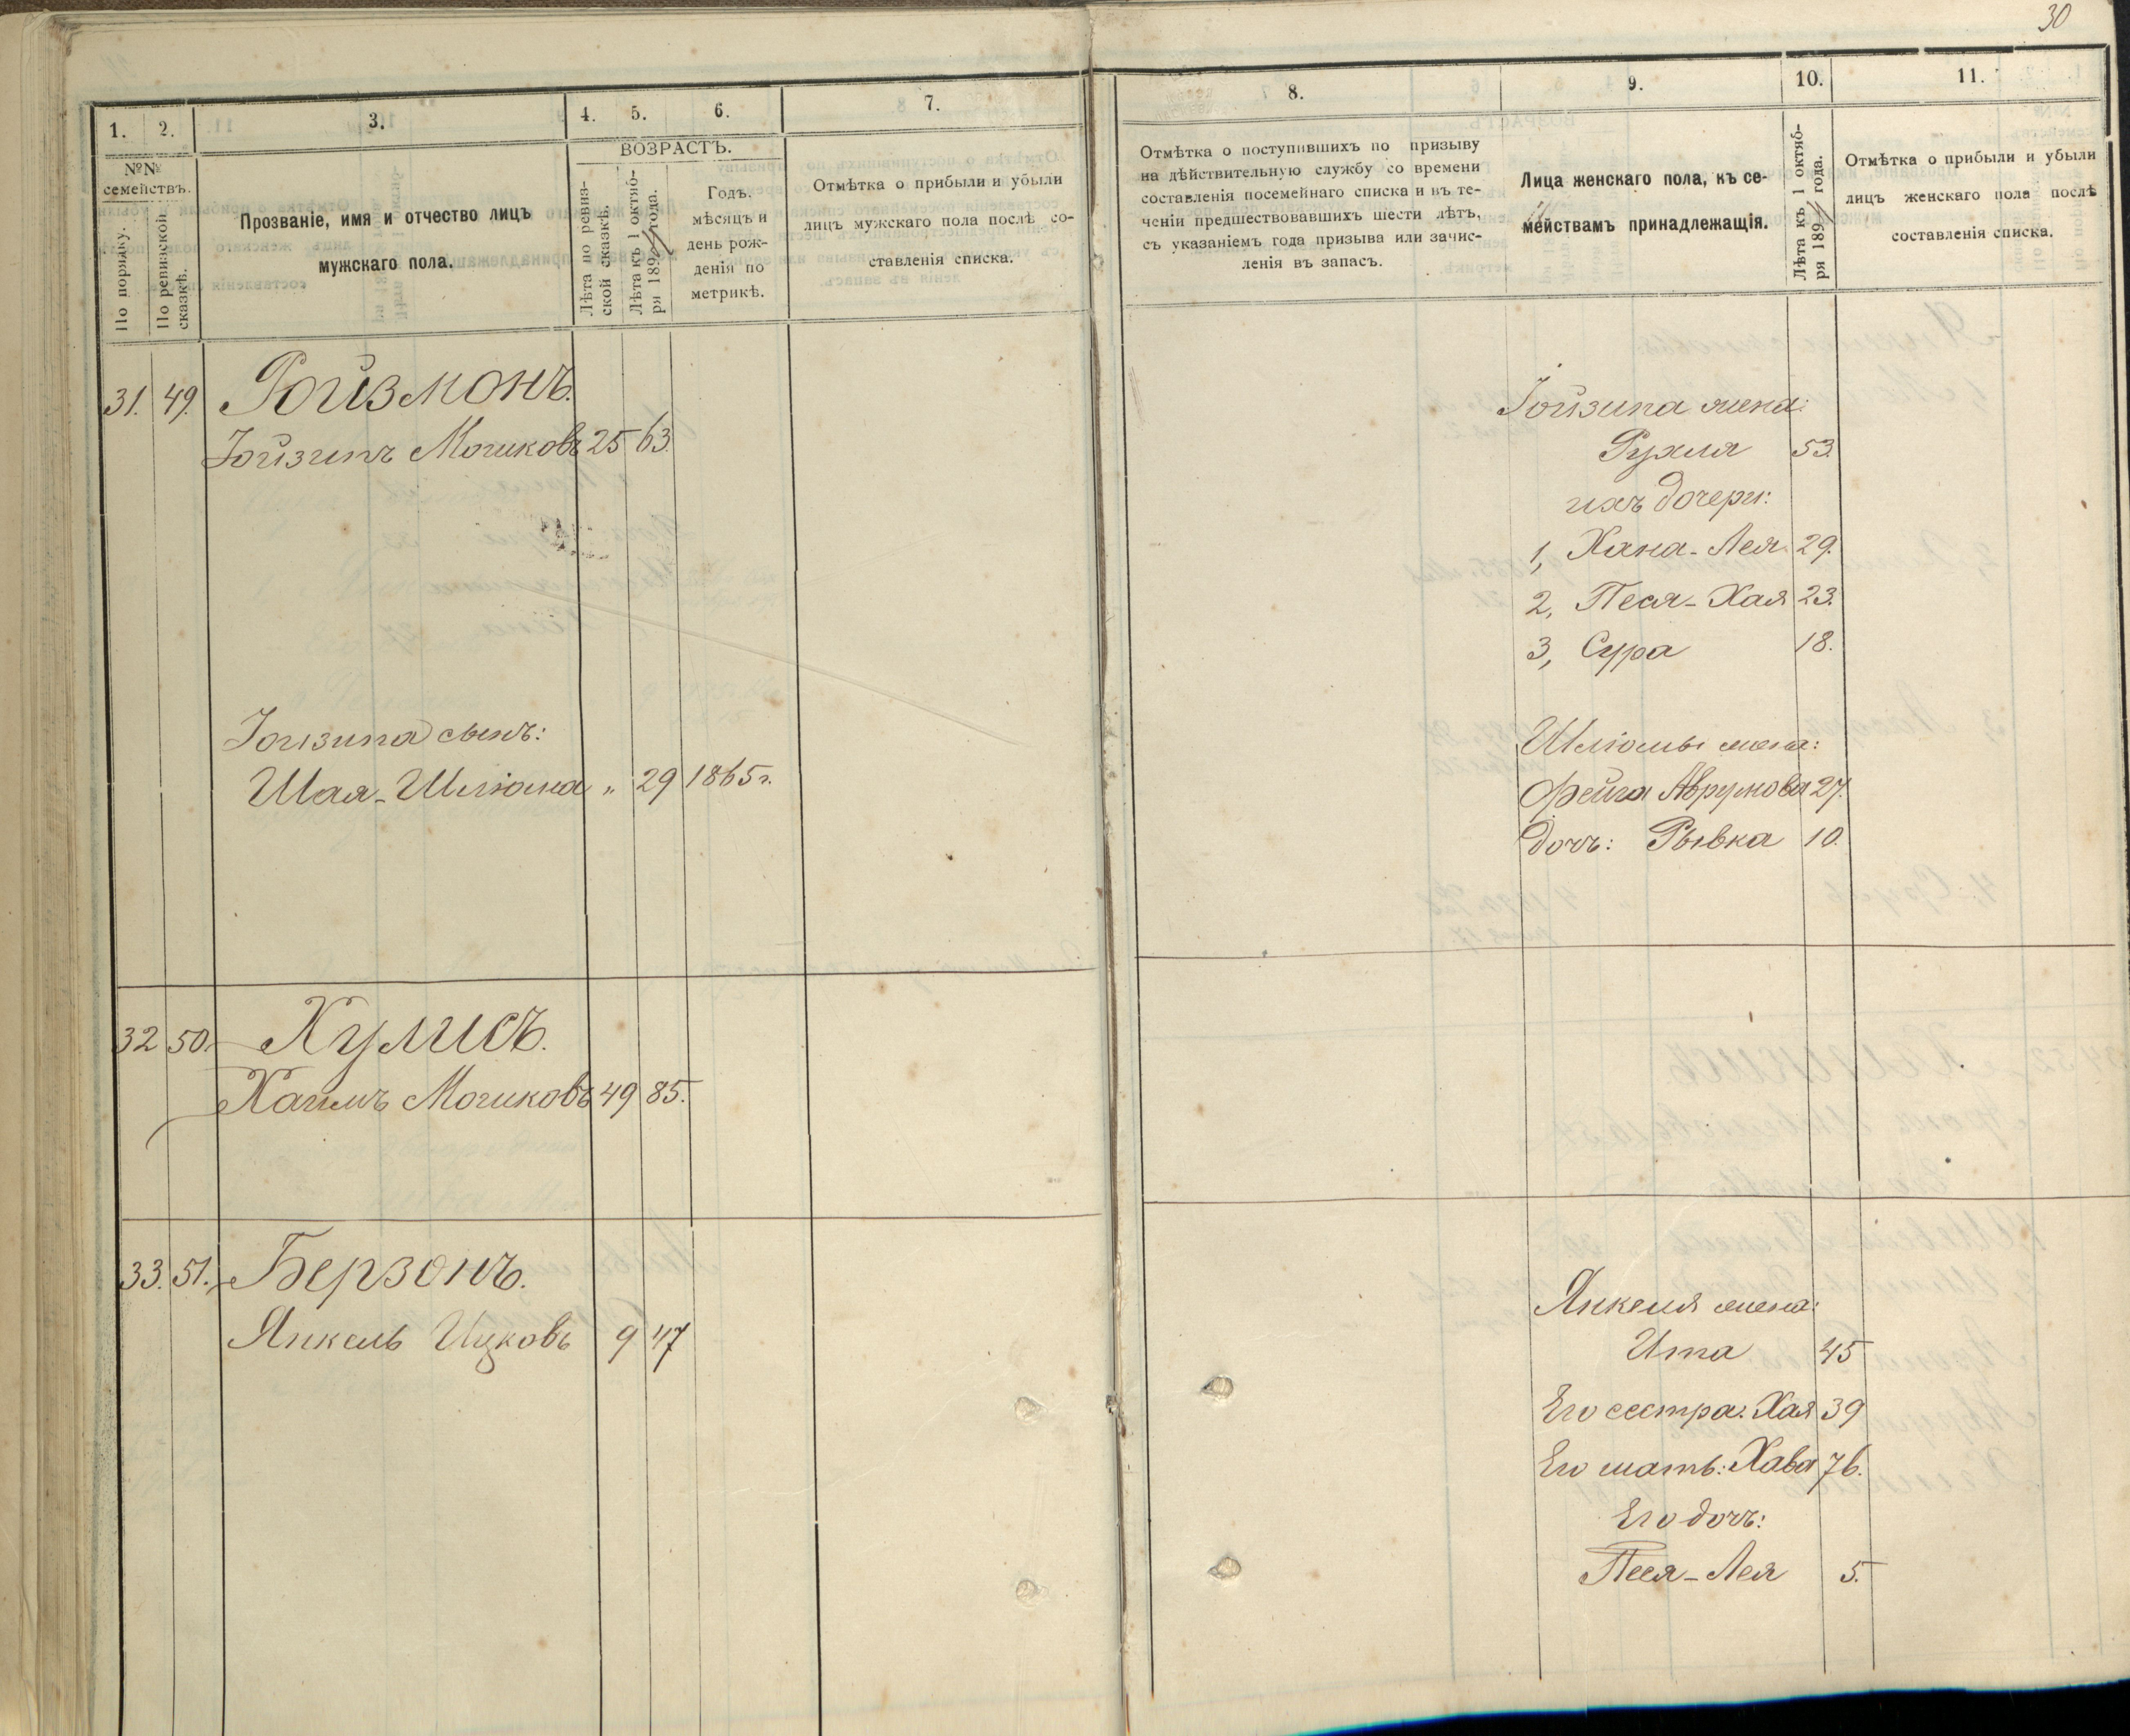 30
1. 2. 3. 4. 5. 6. 7.
№№ семействъ.
По порядку.
По ревизской сказкѣ.
Прозваніе, имя и отчество лицъ
мужскаго пола.
ВОЗРАСТЪ.
Лѣта по ревиз-
ской сказкѣ.
Лѣта къ 1 октяб-
ря 189 года.
Годъ,
мѣсяцъ и
день рож-
денія по
метрикѣ.
Отмѣтка о прибыли и убыли
лицъ мужскаго пола послѣ со-
ставленія списка.
31. 49. Ройзмонъ.
Іойзипъ Мошковъ 25 63.
Іойзипа сынъ:
Шая-Шліома „ 29 1865 г.
32 50. Хулисъ.
Хаимъ Мошковъ 49 85.
33. 51. Берзонъ.
Янкель Ицковъ 9 47
8. 9. 10. 11.
Отмѣтка о поступившихъ по призыву
на дѣйствительную службу со времени
составленія посемейнаго списка и въ те-
ченіи предшествовавшихъ шести лѣтъ,
съ указаніемъ года призыва или зачис-
ленія въ запасъ.
Лица женскаго пола, къ се-
мействамъ принадлежащія.
Лѣта къ 1 октяб-
ря 189 года.
Отмѣтка о прибыли и убыли
лицъ женскаго пола послѣ
составленія списка.
Іойзипа жена:
Рухля 53.
ихъ дочери:
1, Хана-Лея 29.
2, Песя-Хая 23.
3, Сура 18.
Шліомы жена:
Фейга Аврумова 27.
дочь: Рывка 10.
Янкеля жена:
Ита 45
Его сестра: Хая 39
Его мать: Хава 76.
Его дочь:
Песя-Лея 5.